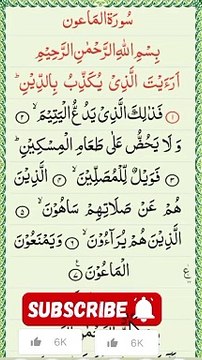 سُورَةُ الْمَاعُون
بِسْمِ اللهِ الرَّحْمٰنِ الرَّحِيْمِ
اَرَءَيْتَ الَّذِىْ يُكَذِّبُ بِالدِّيْنِ ؕ
﴿۱﴾ فَذٰلِكَ الَّذِىْ يَدُعُّ الْيَتِيْمَ ۙ ﴿۲﴾
وَلَا يَحُضُّ عَلٰى طَعَامِ الْمِسْكِيْنِ ؕ
﴿۳﴾ فَوَيْلٌ لِّلْمُصَلِّيْنَ ۙ ﴿۴﴾ الَّذِيْنَ
هُمْ عَنْ صَلَاتِهِمْ سَاهُوْنَ ۙ ﴿۵﴾
الَّذِيْنَ هُمْ يُرَآءُوْنَ ۙ ﴿۶﴾ وَيَمْنَعُوْنَ
الْمَاعُوْنَ ﴿۷﴾ ع
SUBSCRIBE
6K 6K